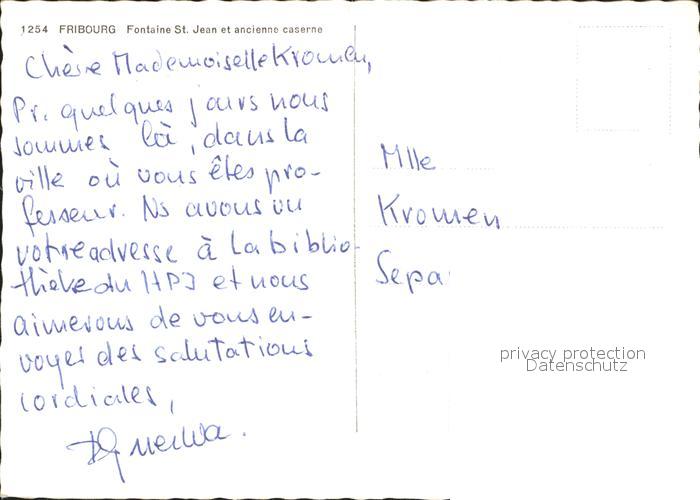 1254 FRIBOURG Fontaine St. Jean et ancienne caserne
Chère Mademoiselle Kromen,
Pr. quelques jours nous
sommes là, dans la
ville où vous êtes pro-
fesseur. Ns avons vu
votre adresse à la biblio-
thèke du HPJ et nous
aimerons de vous en-
voyer des salutations
cordiales,
Mlle
Kromen
Sepa
privacy protection
Datenschutz